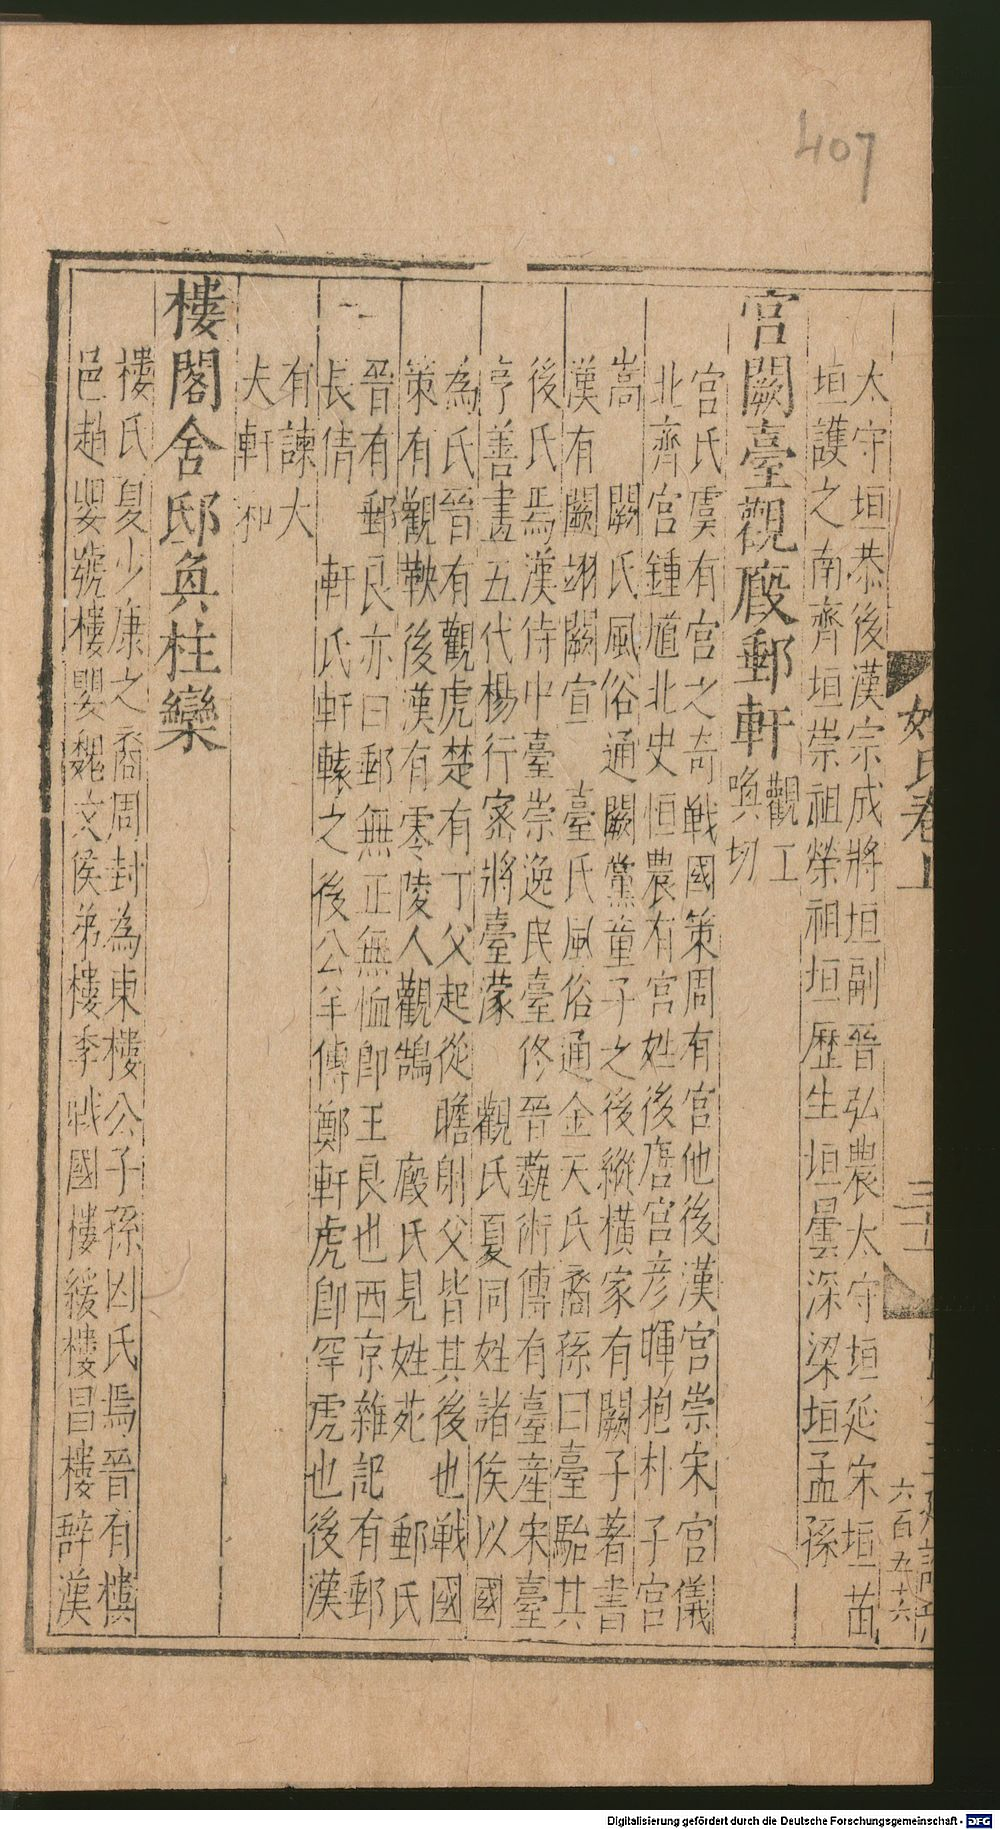 407
太守垣恭後漢宗成將垣副晉弘農太守垣延宋垣苗
垣護之南齊垣崇祖榮祖垣歷生垣曇深梁垣孟孫
宮闕臺觀廄郵軒
觀工
喚切
宮氏虞有宮之奇戰國策周有宮他後漢宮崇宋宮儀
北齊宮鍾馗北史恒農有宮姓後唐宮彦暉抱朴子宮
嵩 闕氏風俗通闕黨童子之後縱橫家有闕子著書
漢有闕翊闕宣 臺氏風俗通金天氏裔孫曰臺駘其
後氏焉漢侍中臺崇逸民臺佟晉藝術傳有臺産宋臺
亨善畫五代楊行密將臺濛 觀氏夏同姓諸侯以國
為氏晉有觀虎楚有丁父起從瞻射父皆其後也戰國
策有觀鞅後漢有零陵人觀鵠 廄氏見姓苑 郵氏
晉有郵良亦曰郵無正無恤卽王良也西京雜記有郵
長倩 軒氏軒轅之後公羊傳鄭軒虎卽罕虎也後漢
有諫大
夫軒和
樓閣舍邸奐柱欒
樓氏夏少康之裔周封為東樓公子孫因氏焉晉有樓
邑趙嬰號樓嬰魏文侯弟樓季戰國樓緩樓昌樓辭漢
姓氏卷上
六百五十六
Digitalisierung gefördert durch die Deutsche Forschungsgemeinschaft - DFG